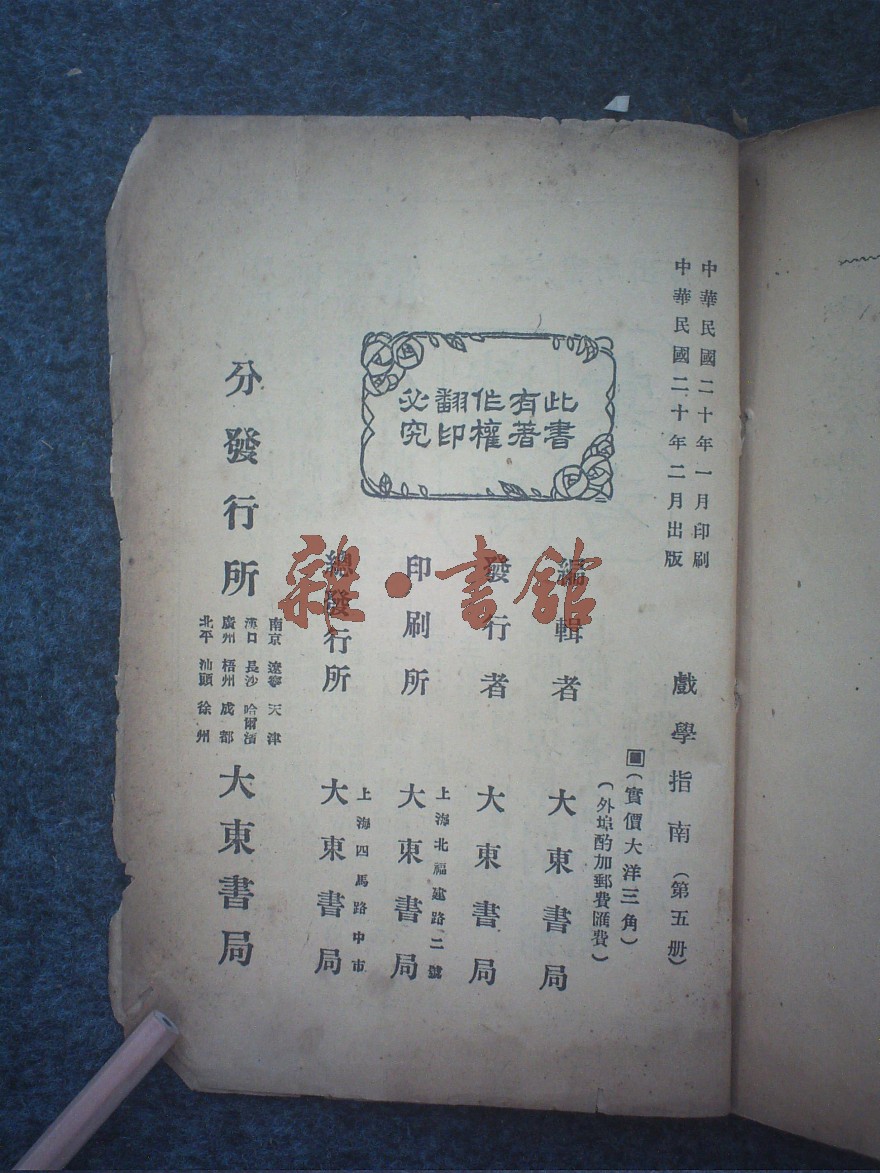 中華民國二十年一月印刷
中華民國二十年二月出版
戲學指南(第五册)
(實價大洋三角)
(外埠酌加郵費匯費)
此書
有著
作權
翻印
必究
編輯者 大東書局
發行者 大東書局
上海北福建路二號
印刷所 大東書局
上海四馬路中市
總發行所 大東書局
分發行所
南京 遼寧 天津
漢口 長沙 哈爾濱
廣州 梧州 成都
北平 汕頭 徐州
大東書局
雜·書館